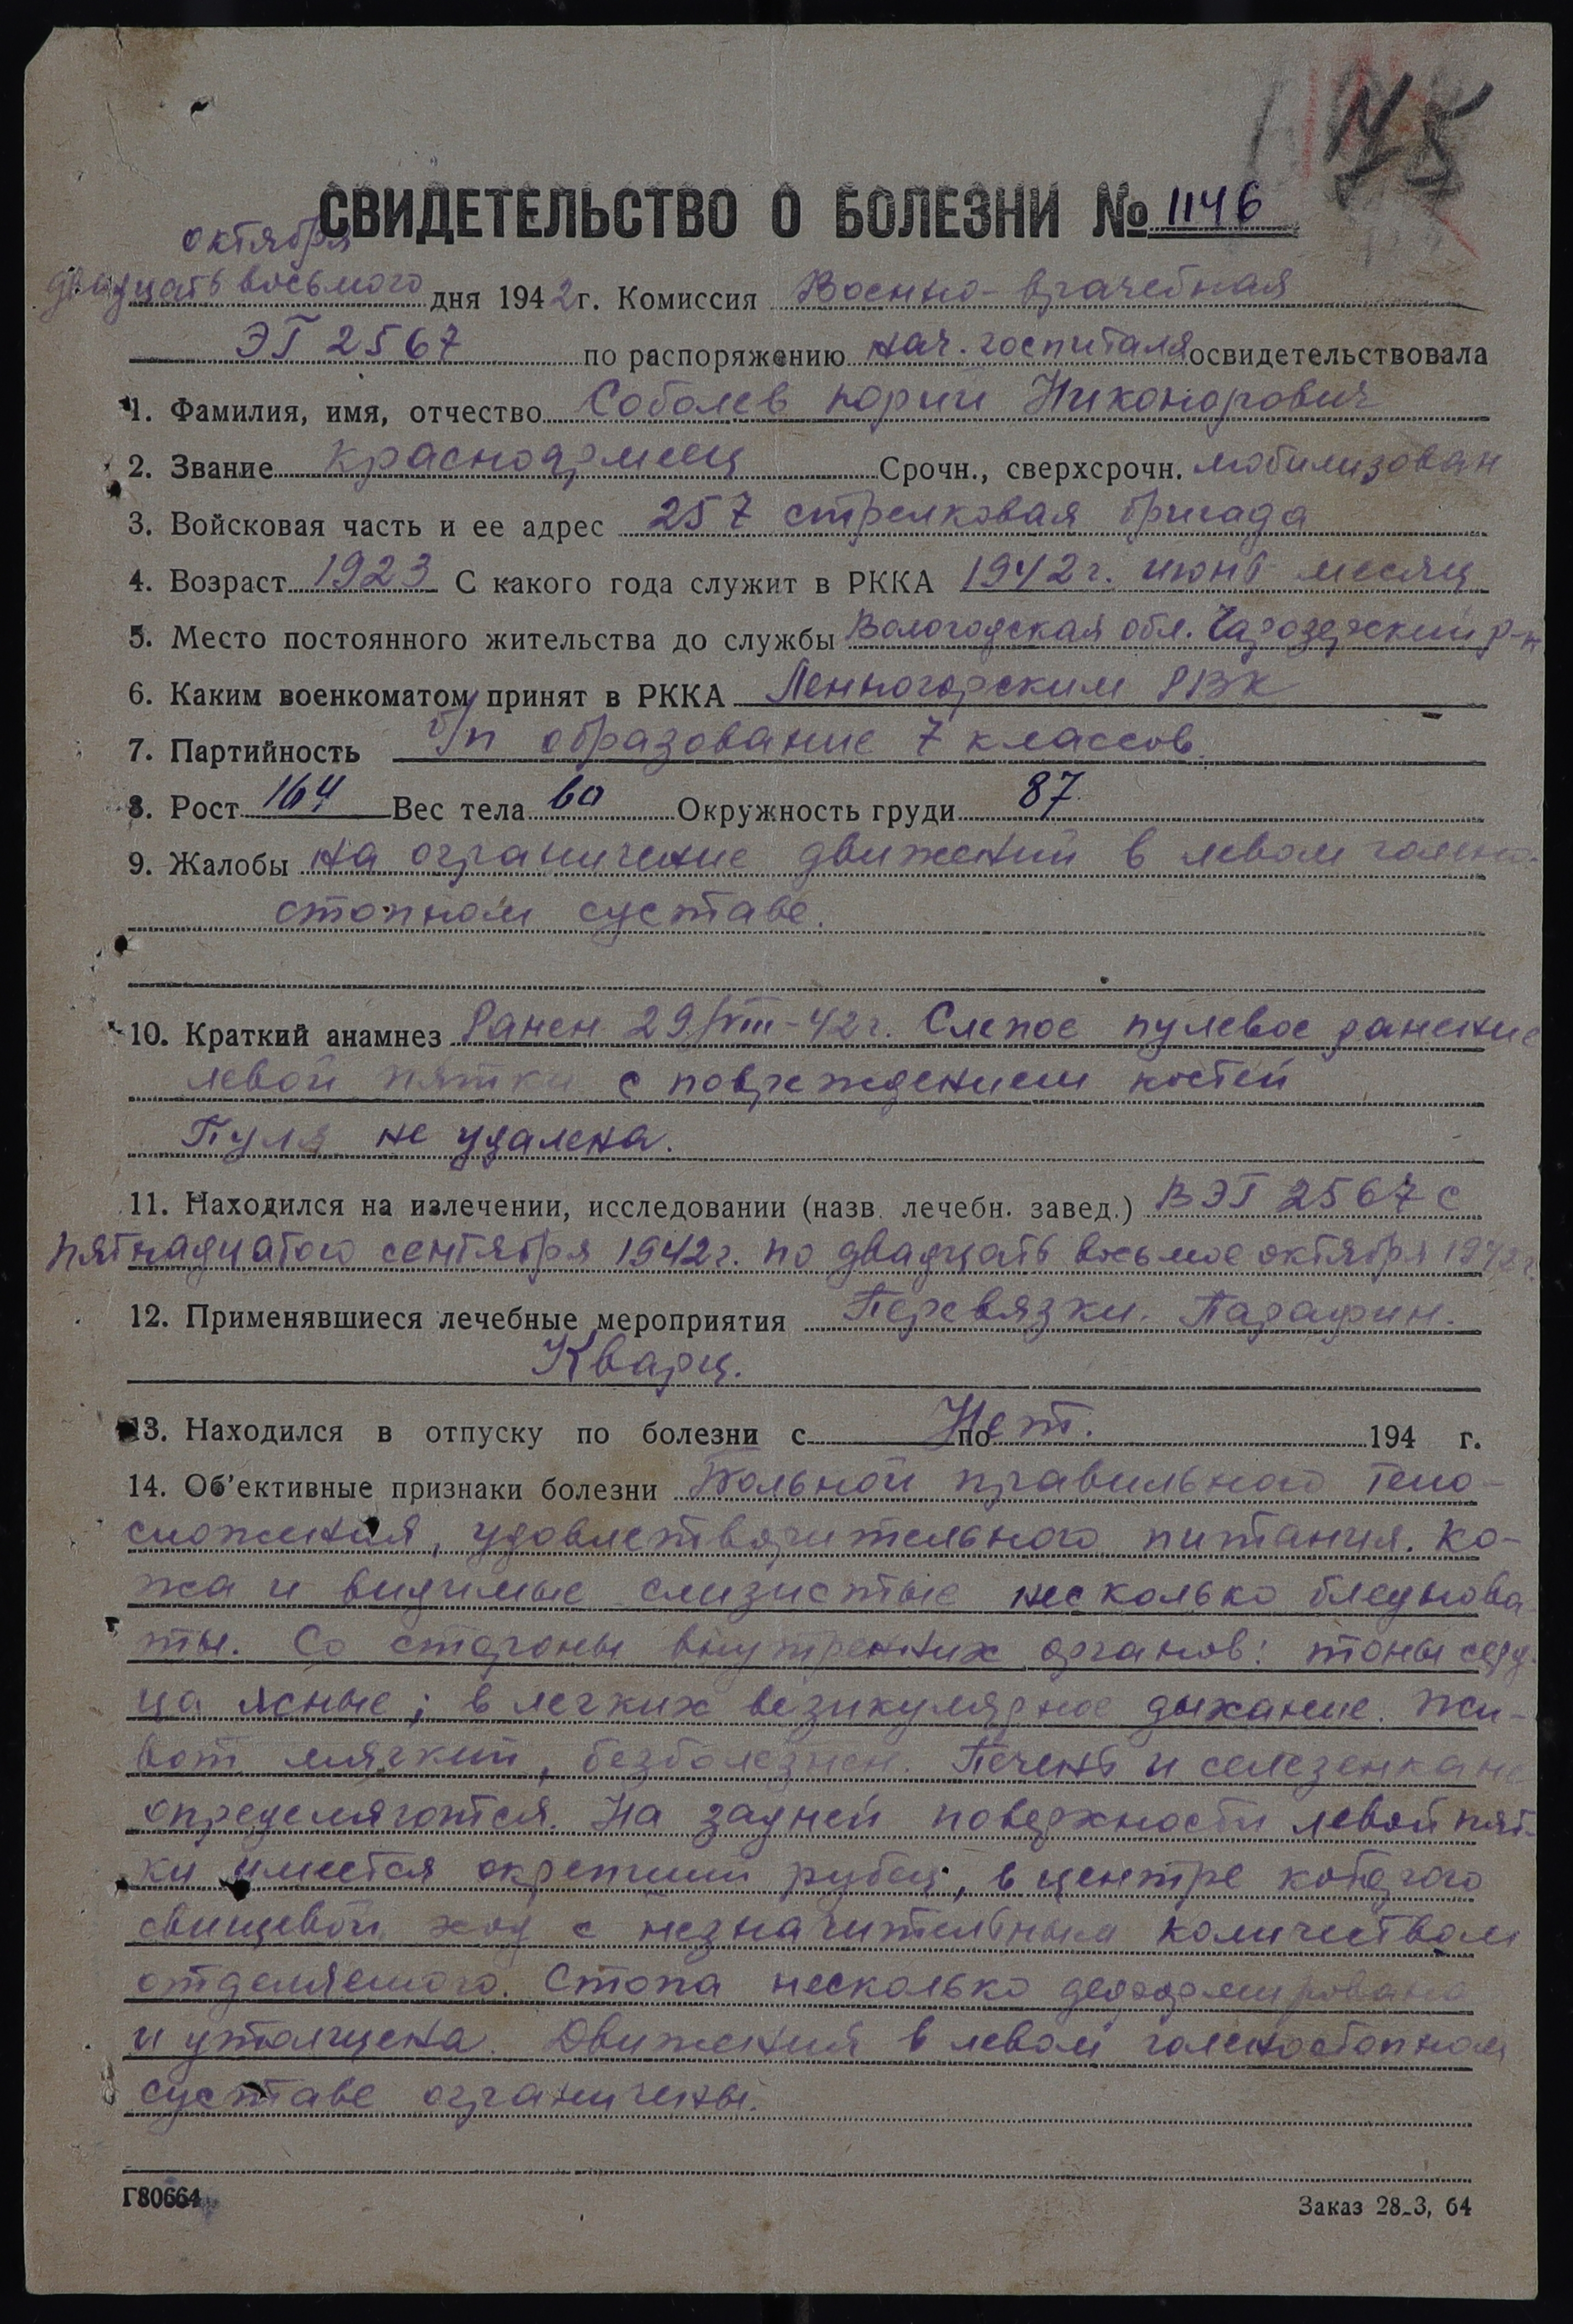 СВИДЕТЕЛЬСТВО О БОЛЕЗНИ № 1146
октября
двадцать восьмого дня 1942 г. Комиссия Военно-врачебная
ЭГ 2567 по распоряжению нач. госпиталя освидетельствовала
1. Фамилия, имя, отчество Соболев Юрий Никонорович
2. Звание красноармеец Срочн., сверхсрочн. мобилизован
3. Войсковая часть и ее адрес 257 стрелковая бригада
4. Возраст 1923 С какого года служит в РККА 1942 г. июнь месяц
5. Место постоянного жительства до службы Вологодская обл. Чарозерский р-н
6. Каким военкоматом принят в РККА Ленногорским РВК
7. Партийность б/п образование 7 классов.
8. Рост 164 Вес тела 60 Окружность груди 87
9. Жалобы на ограничение движений в левом голено-
стопном суставе.
10. Краткий анамнез Ранен 29/VIII-42 г. Слепое пулевое ранение
левой пятки с повреждением костей
Пуля не удалена.
11. Находился на излечении, исследовании (назв. лечебн. завед.) В ЭГ 2567 с
пятнадцатого сентября 1942 г. по двадцать восьмое октября 1942 г.
12. Применявшиеся лечебные мероприятия Перевязки. Парафин.
Кварц.
13. Находился в отпуску по болезни с Нет. по 194 г.
14. Об'ективные признаки болезни Больной правильного тело-
сложения, удовлетворительного питания. Ко-
жа и видимые слизистые несколько бледнова-
ты. Со стороны внутренних органов: тоны серд-
ца ясные; в легких везикулярное дыхание. Жи-
вот мягкий, безболезнен. Печень и селезенка не
определяются. На задней поверхности левой пят-
ки имеется окрепший рубец, в центре которого
свищевой ход с незначительным количеством
отделяемого. Стопа несколько деформирована
и утолщена. Движения в левом голеностопном
суставе ограничены.
Г80664
Заказ 28-3, 64